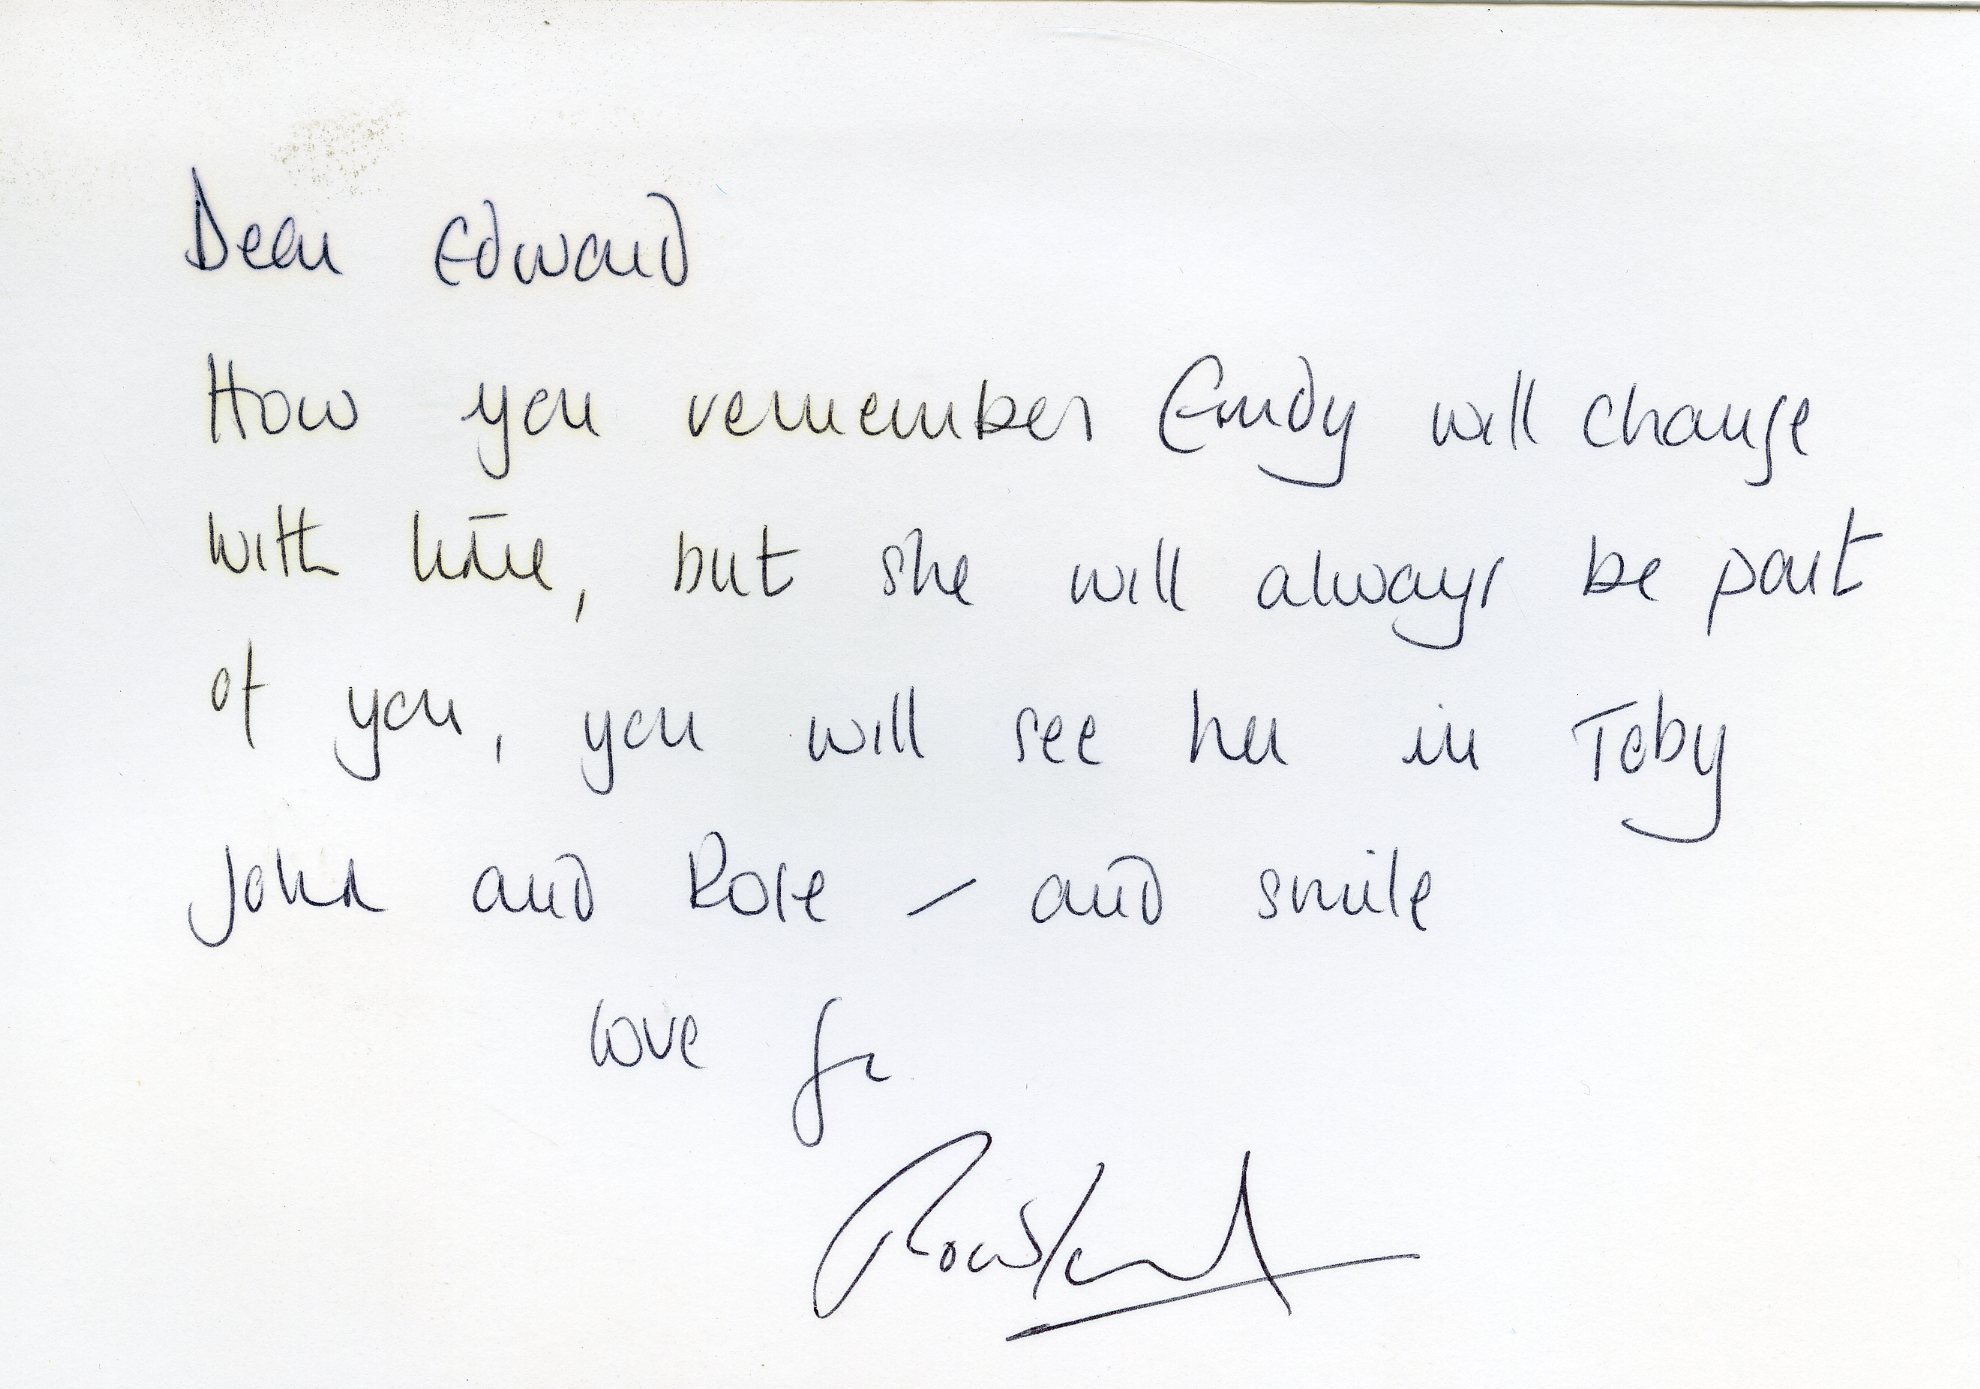 Dear Edward
How you remember Emdy will change
with time, but she will always be part
of you, you will see her in Toby
John and Rose – and smile
love
Rowland